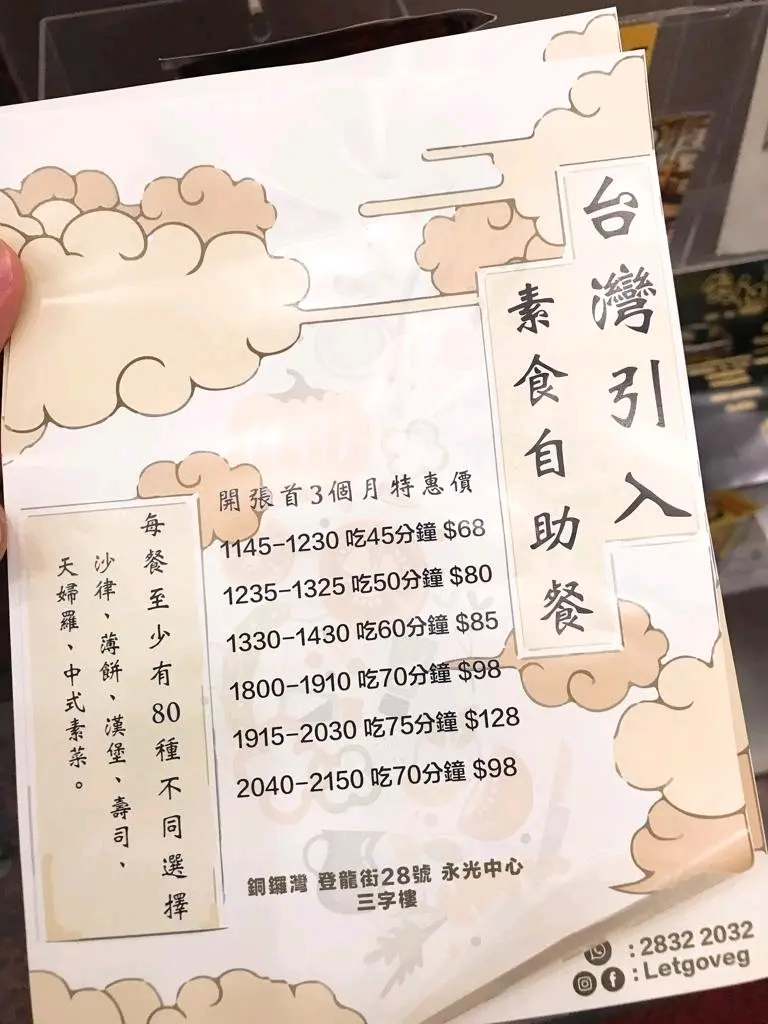 台灣引入
素食自助餐
開張首3個月特惠價
1145-1230 吃45分鐘 $68
1235-1325 吃50分鐘 $80
1330-1430 吃60分鐘 $85
1800-1910 吃70分鐘 $98
1915-2030 吃75分鐘 $128
2040-2150 吃70分鐘 $98
每餐至少有80種不同選擇
沙律、薄餅、漢堡、壽司、
天婦羅、中式素菜。
銅鑼灣 登龍街28號 永光中心
三字樓
: 2832 2032
: Letgoveg